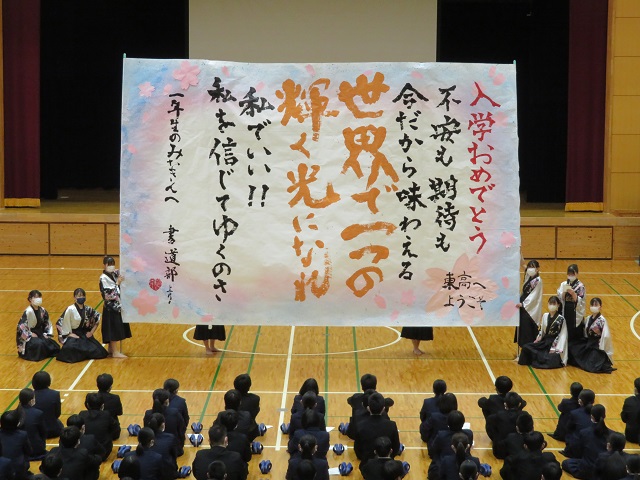 入学おめでとう
不安も期待も
今だから味わえる
世界で一つの
輝く光になれ
私でいい!!
私を信じてゆくのさ
東高へ
ようこそ
一年生のみなさんへ
書道部より